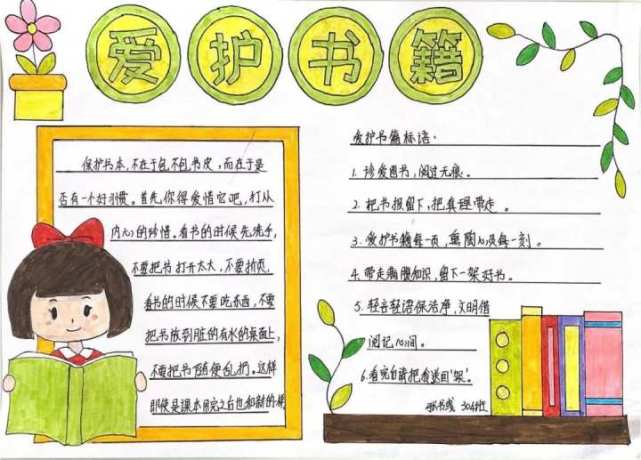 爱护书籍
保护书本,不在于包不包书皮,而在于是
否有一个好习惯。首先,你得爱惜它吧,打从
内心的珍惜。看书的时候先洗手,
不要把书打开太大,不要折页,
看书的时候不要吃东西,不要
把书放到脏的有水的桌面上,
不要把书随便乱扔。这样
即使是课本用完之后也和新的一样
爱护书籍标语:
1. 珍爱图书,阅过无痕。
2. 把书报留下,把真理带走。
3. 爱护书籍每一页,熏陶心灵每一刻。
4. 带走满腹知识,留下一架好书。
5. 轻言轻语保洁净,文明借
阅记心间。
6. 看完自请把我送回"架"。
304班